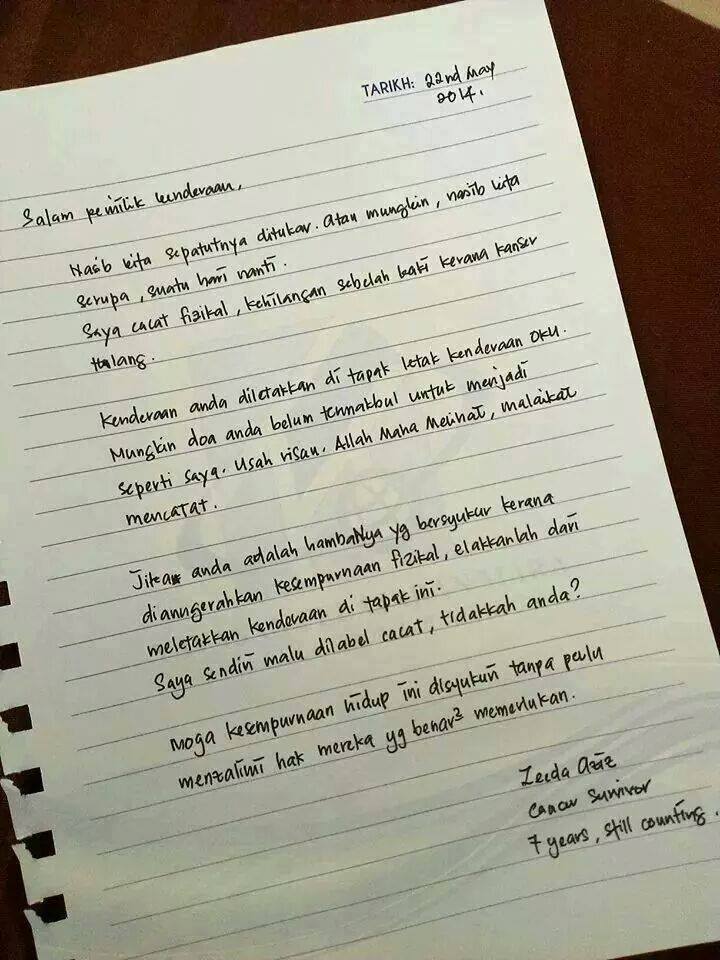 TARIKH: 22nd May
2014.
Salam pemilik kenderaan,
Nasib kita sepatutnya ditukar. Atau mungkin, nasib kita
serupa, suatu hari nanti.
Saya cacat fizikal, kehilangan sebelah kaki kerana kanser
tulang.
Kenderaan anda diletakkan di tapak letak kenderaan OKU.
Mungkin doa anda belum termakbul untuk menjadi
seperti saya. Usah risau. Allah Maha Melihat, malaikat
mencatat.
Jika anda adalah hambaNya yg bersyukur kerana
dianugerahkan kesempurnaan fizikal, elakkanlah dari
meletakkan kenderaan di tapak ini.
Saya sendiri malu dilabel cacat, tidakkah anda?
Moga kesempurnaan hidup ini disyukuri tanpa perlu
menzalimi hak mereka yg benar² memerlukan.
Zeida Aziz
Cancer Survivor
7 years, still counting.